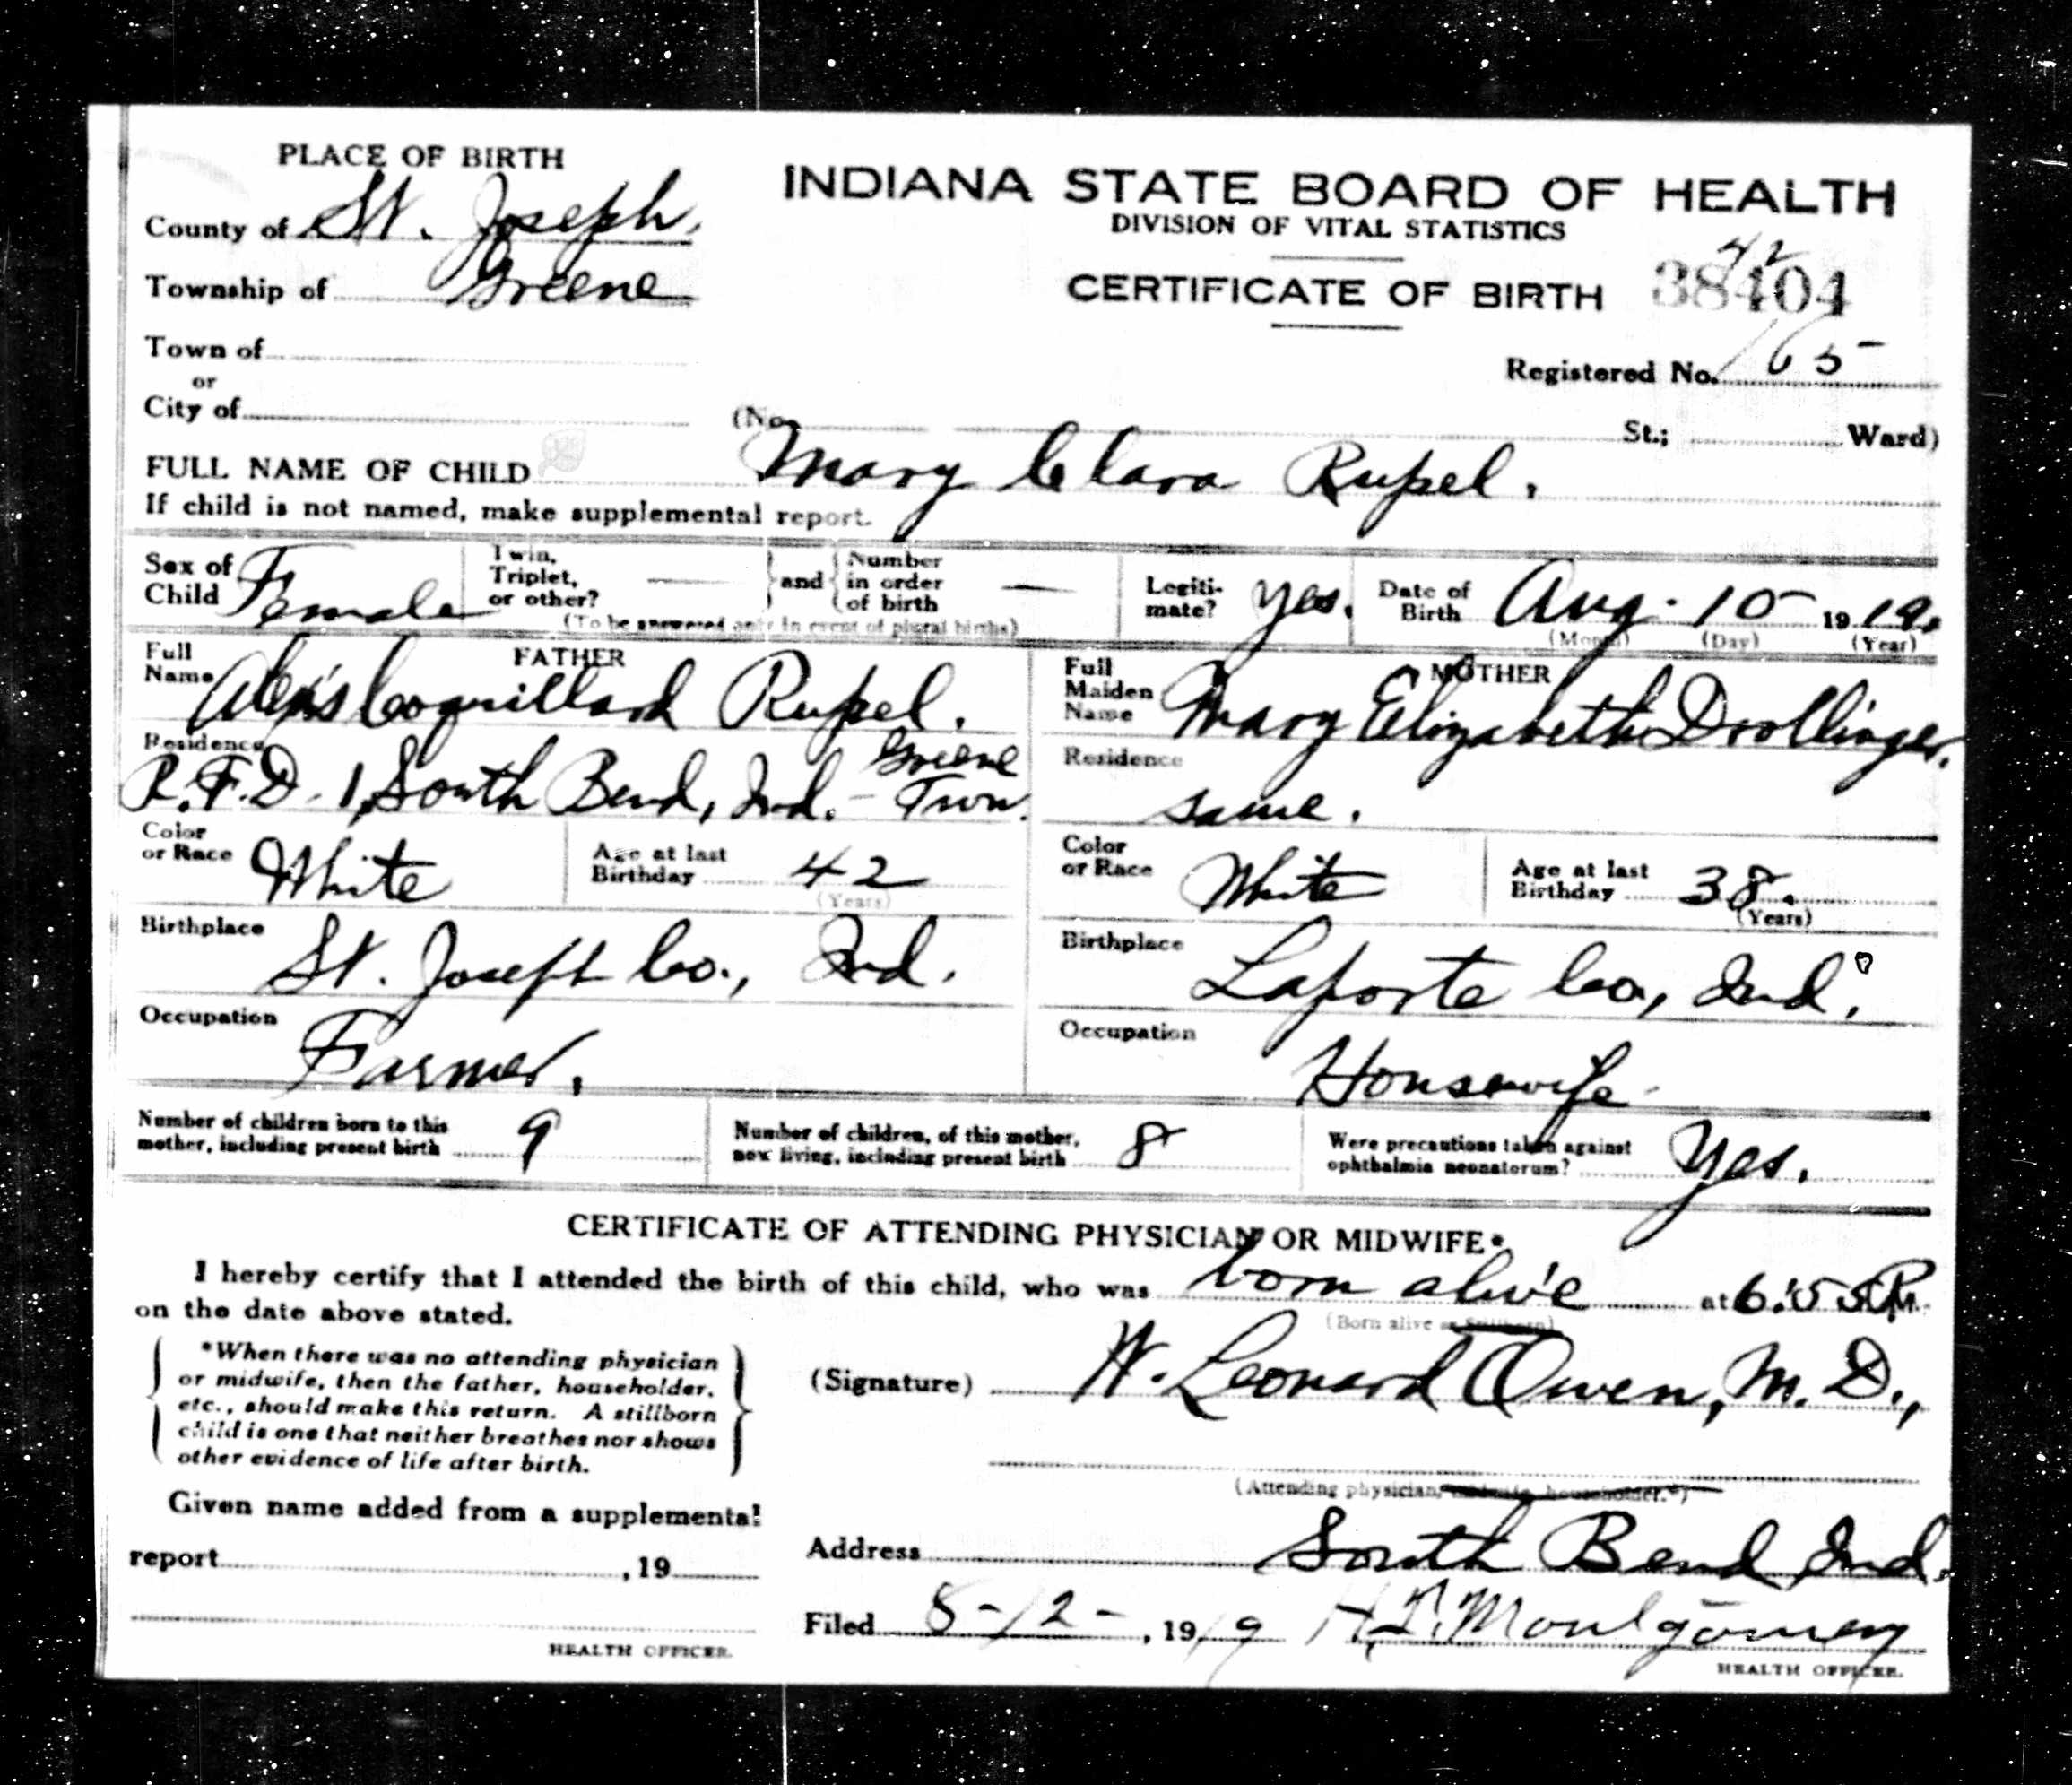 PLACE OF BIRTH
County of St. Joseph.
Township of Greene
Town of
or
City of
INDIANA STATE BOARD OF HEALTH
DIVISION OF VITAL STATISTICS
42
CERTIFICATE OF BIRTH 38404
Registered No. 165
(No. St.; Ward)
FULL NAME OF CHILD Mary Clara Rupel.
If child is not named, make supplemental report.
Sex of Child Female
Twin, Triplet, or other? — and Number in order of birth —
(To be answered only in event of plural births)
Legiti- mate? yes.
Date of Birth Aug. 10 1919.
(Month) (Day) (Year)
FATHER
Full Name Alexis Coquillard Rupel.
Residence R.F.D. 1, South Bend, Ind. - Greene Twn.
Color or Race White
Age at last Birthday 42
(Years)
Birthplace St. Joseph Co., Ind.
Occupation Farmer.
MOTHER
Full Maiden Name Mary Elizabeth Drollinger.
Residence same.
Color or Race White
Age at last Birthday 38.
(Years)
Birthplace Laporte Co., Ind.
Occupation Housewife
Number of children born to this mother, including present birth 9
Number of children, of this mother, now living, including present birth 8
Were precautions taken against ophthalmia neonatorum? Yes.
CERTIFICATE OF ATTENDING PHYSICIAN OR MIDWIFE*
I hereby certify that I attended the birth of this child, who was born alive at 6:55 P.M.
on the date above stated.
(Born alive or Stillborn)
*When there was no attending physician
or midwife, then the father, householder,
etc., should make this return. A stillborn
child is one that neither breathes nor shows
other evidence of life after birth.
(Signature) W. Leonard Owen, M.D.,
(Attending physician, midwife, householder.*)
Given name added from a supplemental
report , 19
HEALTH OFFICER.
Address South Bend Ind.
Filed 8-12-, 1919 H.T. Montgomery
HEALTH OFFICER.